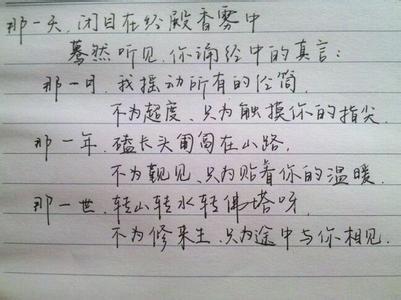 那一天,闭目在经殿香雾中
蓦然听见,你诵经中的真言;
那一日,我摇动所有的经筒,
不为超度、只为触摸你的指尖
那一年,磕长头匍匐在山路,
不为觐见、只为贴着你的温暖.
那一世,转山转水转佛塔呀,
不为修来生、只为途中与你相见.